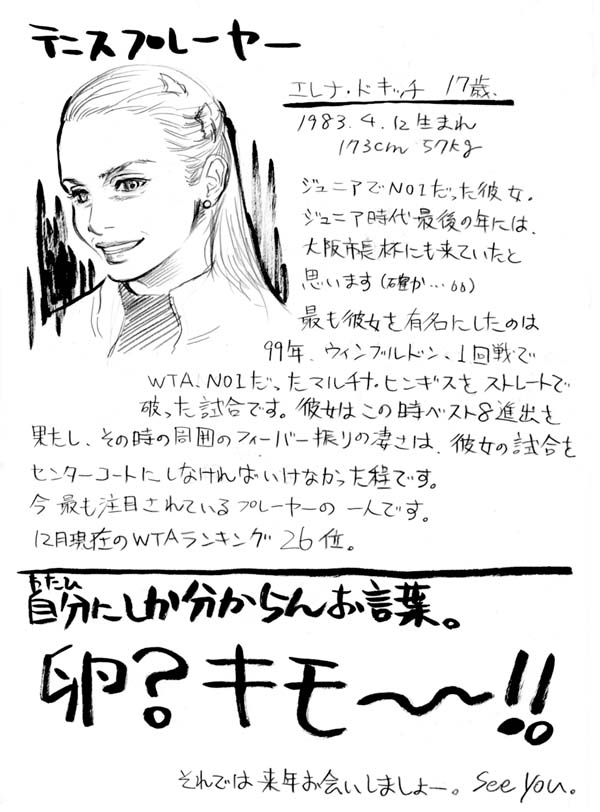 テニスプレーヤー
エレナ・ドキッチ 17歳.
1983.4.12生まれ
173cm 57kg
ジュニアでNO1だった彼女.
ジュニア時代最後の年には、
大阪市長杯にも来ていたと
思います(確か…66)
最も彼女を有名にしたのは
99年、ウィンブルドン、1回戦で
WTA.NO1だったマルチナ・ヒンギスをストレートで
破った試合です。彼女はこの時ベスト8進出を
果たし、その時の周囲のフィーバー振りの凄さは、彼女の試合を
センターコートにしなければいけなかった程です。
今最も注目されているプレーヤーの一人です。
12月現在のWTAランキング26位。
自分にしか分からんお言葉。
卵?キモ〜〜!!
それでは来年お会いしましょー。See You.